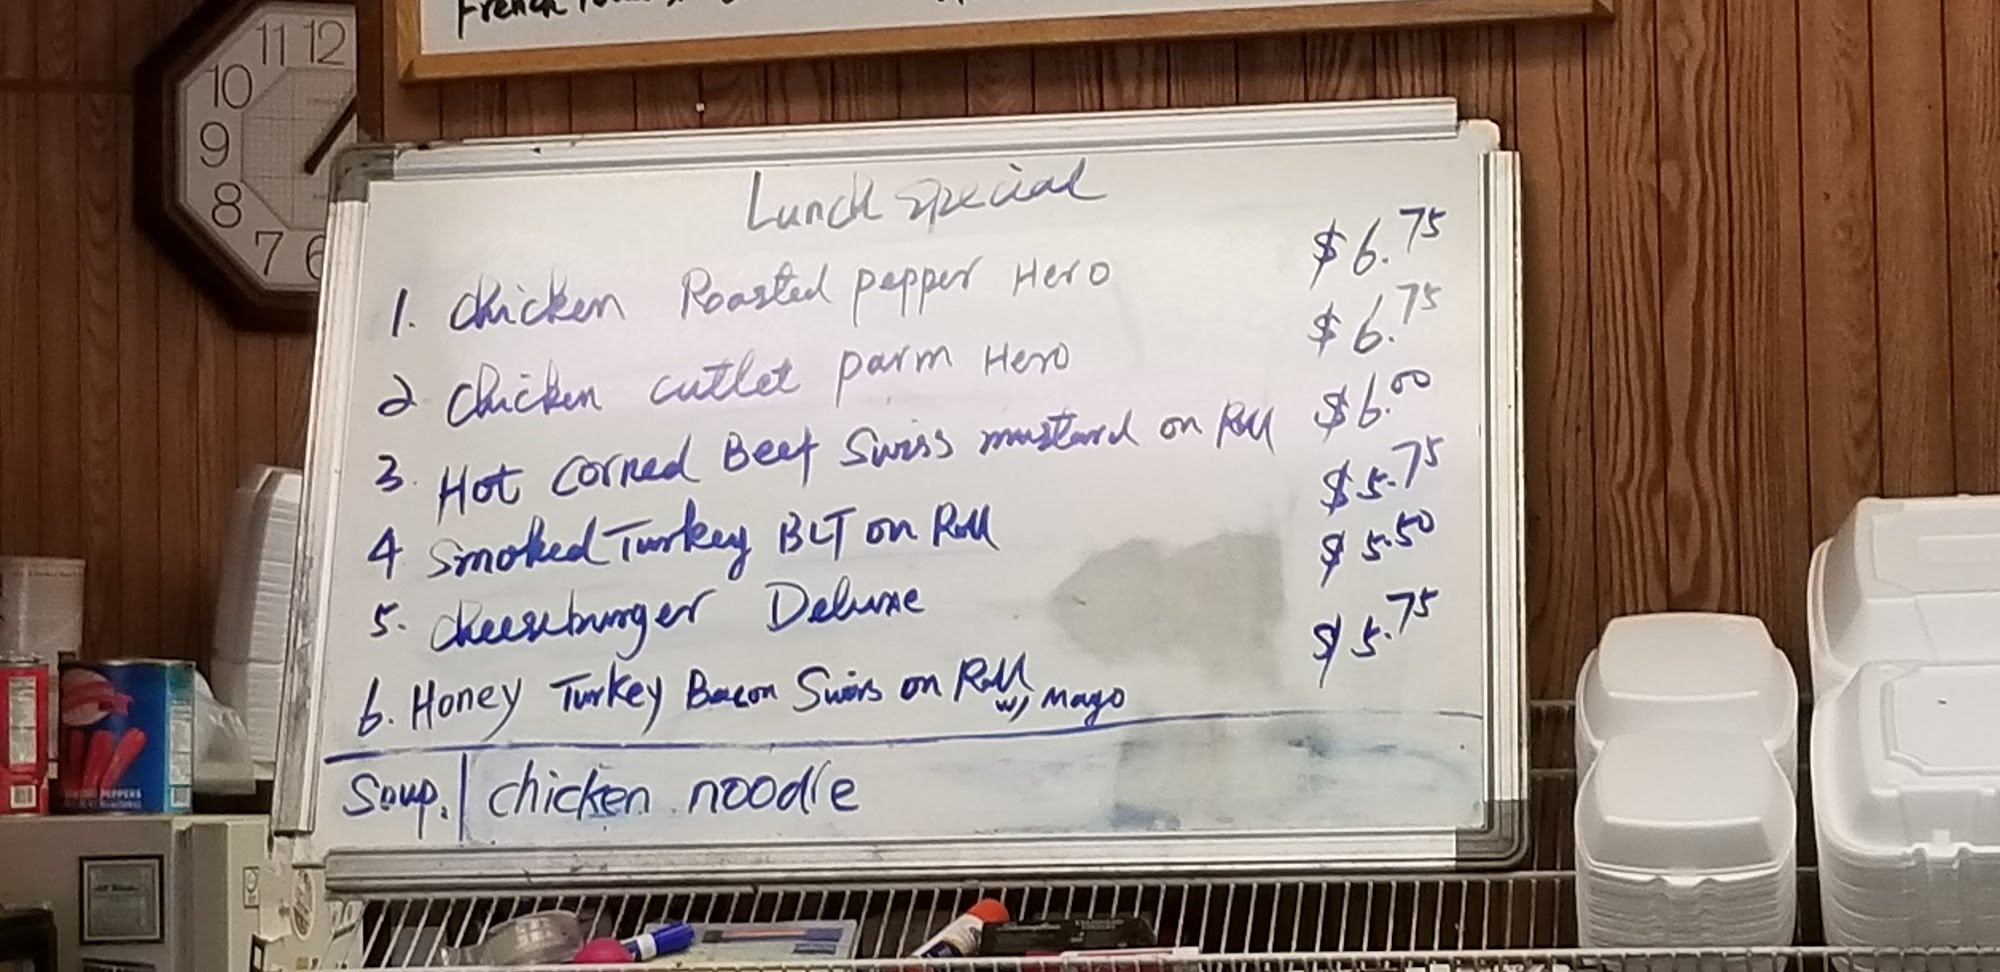 French
11 12
10
9
8
7 6
Lunch special
1. chicken Roasted pepper Hero $6.75
2 chicken cutlet parm Hero $6.75
3. Hot corned Beef Swiss mustard on Roll $6.00
4 Smoked Turkey BLT on Roll $5.75
5. cheeseburger Deluxe $5.50
6. Honey Turkey Bacon Swiss on Roll w/ mayo $5.75
Soup. | chicken noodle
PEPPERS